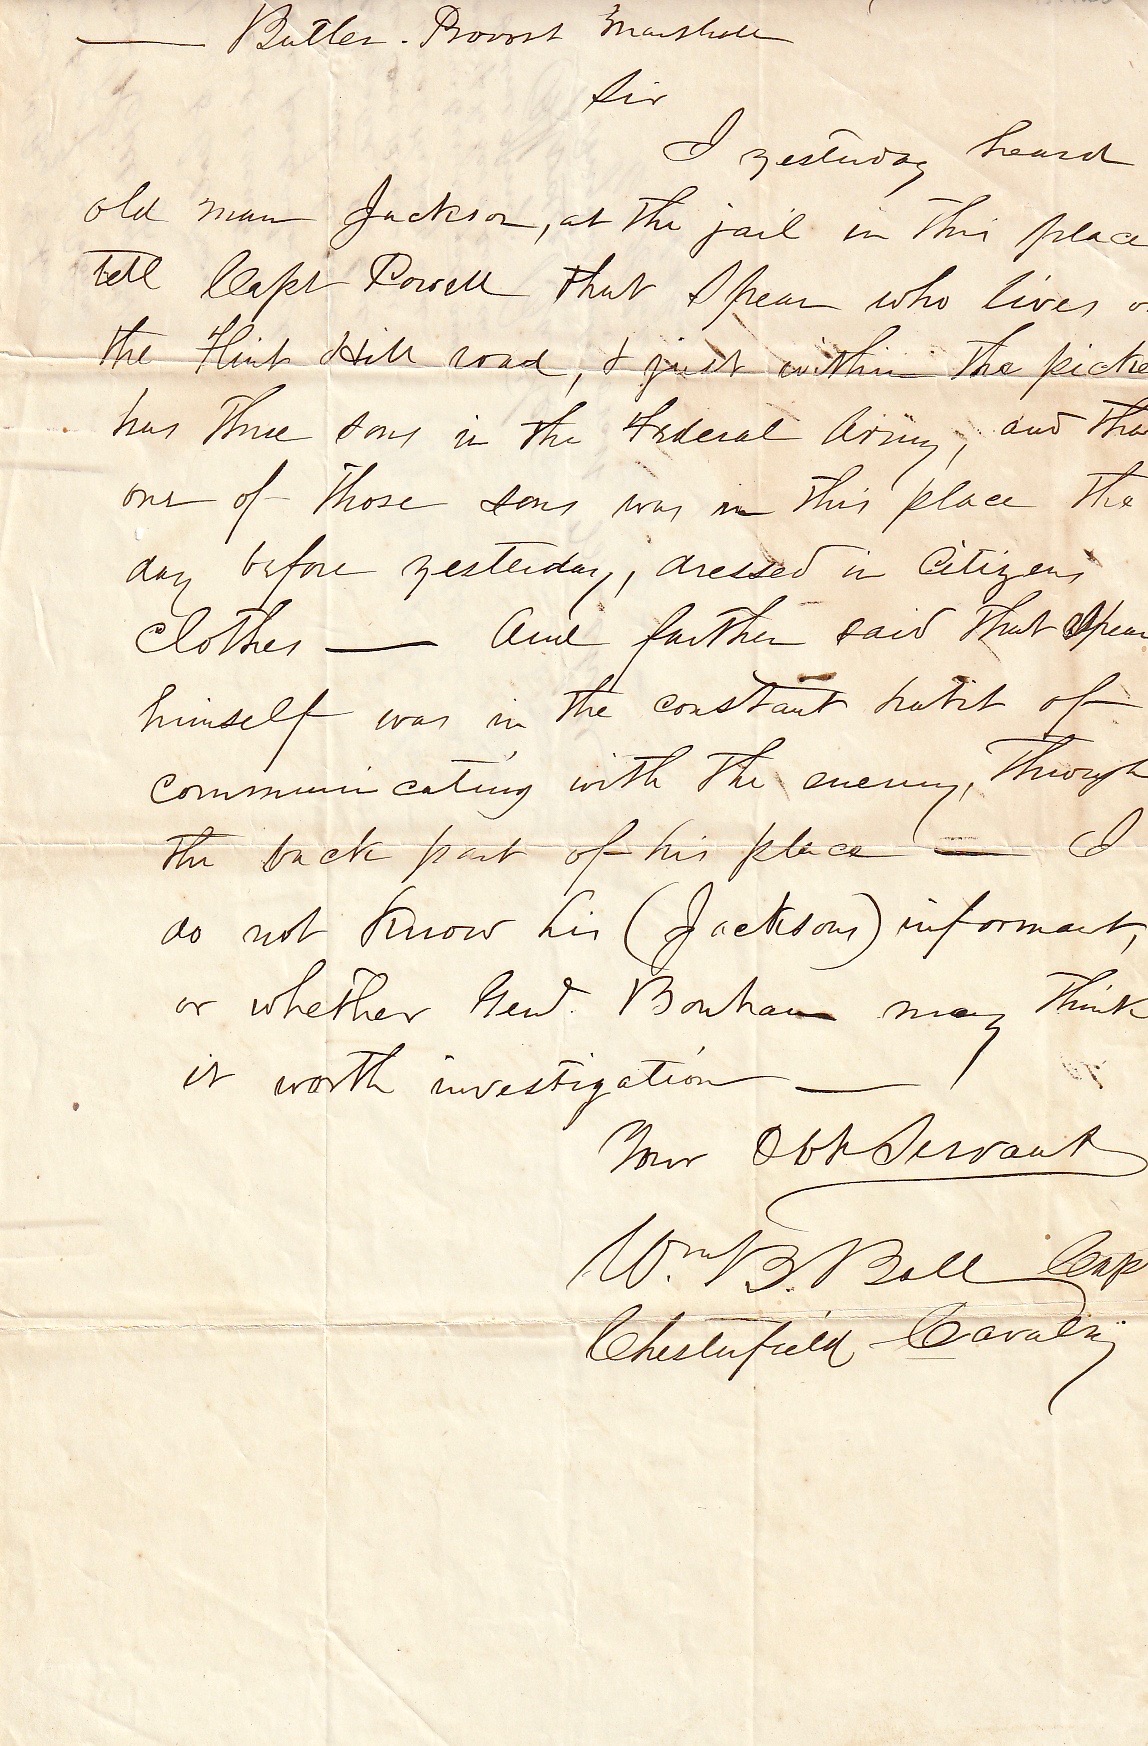 —— Butler. Provost Marshall
Sir
I yesterday heard
old man Jackson, at the jail in this place
tell Capt Powell that Spear who lives o
the Flint Hill road, & just within the picke
has three sons in the Federal Army, and tha
one of those sons was in this place the
day before yesterday, dressed in Citizens
Clothes —— And farther said that Spear
himself was in the constant habit of
communicating with the enemy, through
the back part of his place — I
do not know his (Jacksons) informant,
or whether Genl. Bonham may think
it worth investigation ——
Your Obt Servant
Wm. B. Ball Cap
Chesterfield Cavalry